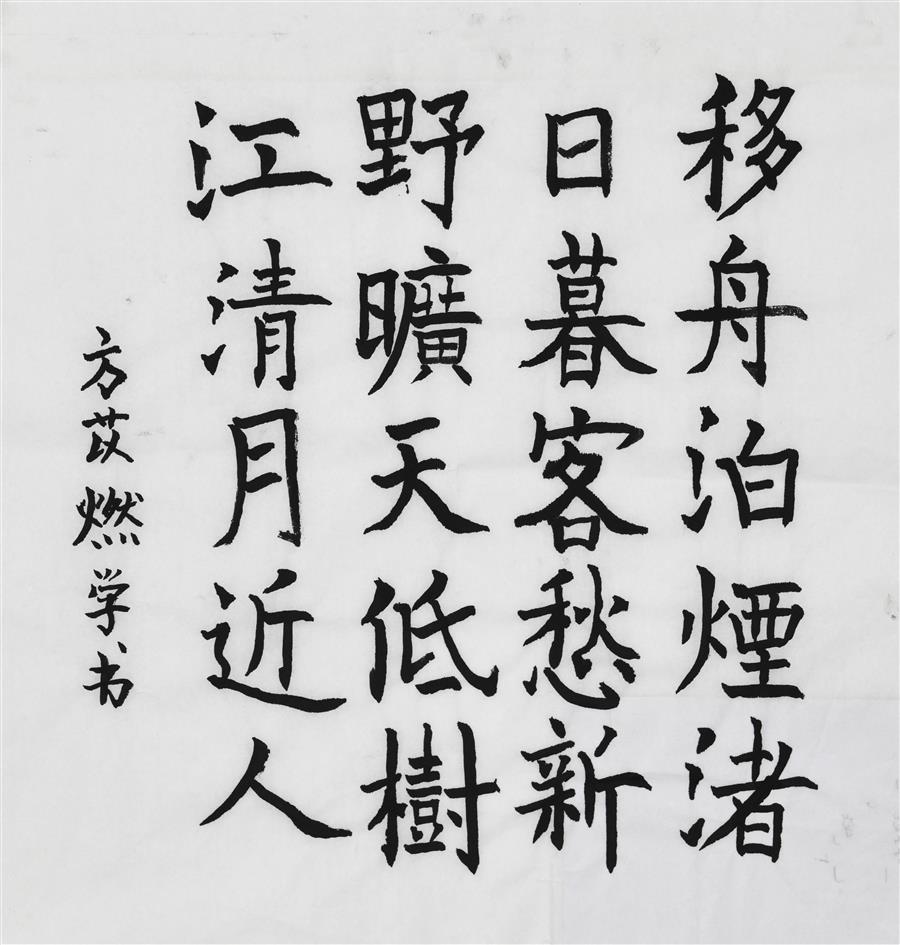 移舟泊煙渚
日暮客愁新
野曠天低樹
江清月近人
方苡燃学书